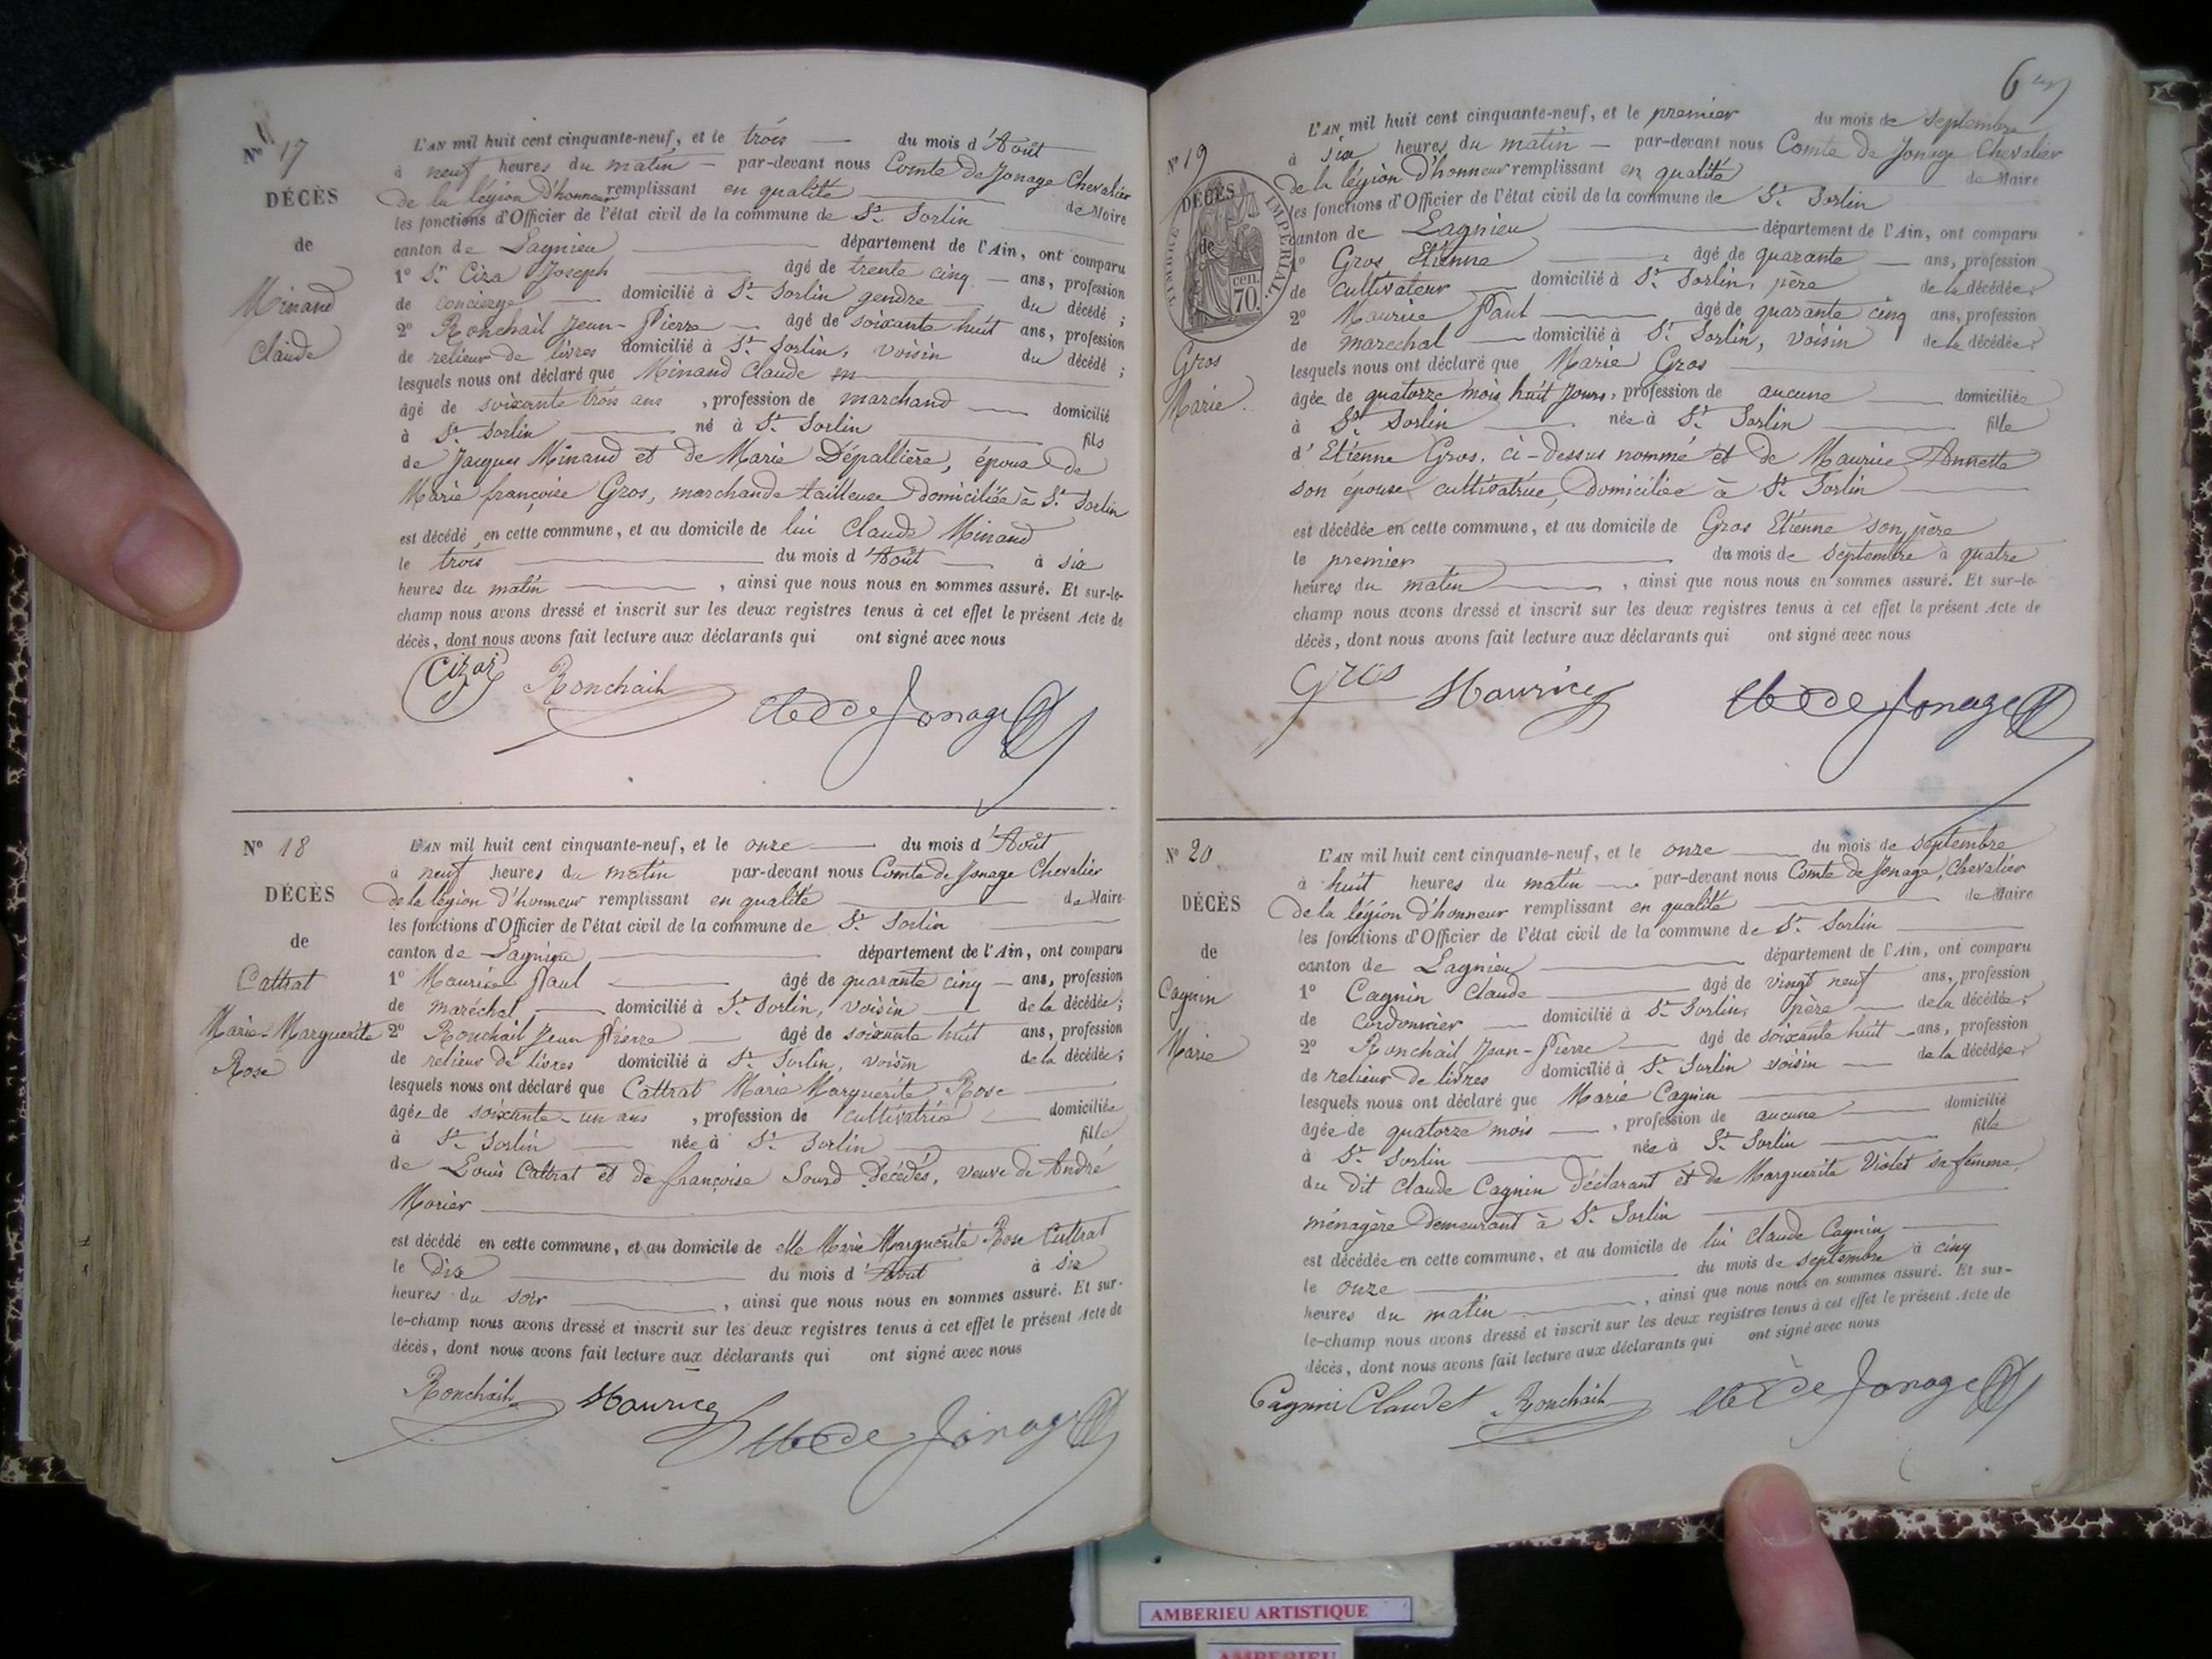 Nº 17
DÉCÈS
de
Minand
Claude
L'AN mil huit cent cinquante-neuf, et le trois du mois d'Août
à neuf heures du matin par-devant nous Comte de Jonage Chevalier
de la légion d'honneur remplissant en qualité de Maire
les fonctions d'Officier de l'état civil de la commune de St. Sorlin
canton de Lagnieu département de l'Ain, ont comparu
1º Sr. Ciza Joseph âgé de trente cinq ans, profession
de concierge domicilié à St. Sorlin gendre du décédé ;
2º Ronchail Jean-Pierre âgé de soixante huit ans, profession
de relieur de livres domicilié à St. Sorlin, voisin du décédé ;
lesquels nous ont déclaré que Minand Claude
âgé de soixante trois ans , profession de marchand domicilié
à St. Sorlin né à St. Sorlin fils
de Jacques Minand et de Marie Dépallière, époux de
Marie françoise Gros, marchande tailleuse domiciliée à St. Sorlin
est décédé en cette commune, et au domicile de lui Claude Minand
le trois du mois d'Août à six
heures du matin , ainsi que nous nous en sommes assuré. Et sur-le-
champ nous avons dressé et inscrit sur les deux registres tenus à cet effet le présent Acte de
décès, dont nous avons fait lecture aux déclarants qui ont signé avec nous
Ronchail Cte de Jonage
Nº 18
DÉCÈS
de
Cattrat
Marie-Marguerite
Rose
L'AN mil huit cent cinquante-neuf, et le onze du mois d'Août
à neuf heures du matin par-devant nous Comte de Jonage Chevalier
de la légion d'honneur remplissant en qualité de Maire
les fonctions d'Officier de l'état civil de la commune de St. Sorlin
canton de Lagnieu département de l'Ain, ont comparu
1º Maurice Paul âgé de quarante cinq ans, profession
de maréchal domicilié à St. Sorlin, voisin de la décédée ;
2º Ronchail Jean Pierre âgé de soixante huit ans, profession
de relieur de livres domicilié à St. Sorlin, voisin de la décédée ;
lesquels nous ont déclaré que Cattrat Marie Marguerite Rose
âgée de soixante-un ans , profession de cultivatrice domiciliée
à St. Sorlin née à St. Sorlin fille
de Louis Cattrat et de françoise Sourd décédés, veuve de André
Morier
est décédé en cette commune, et au domicile de elle Marie Marguerite Rose Cattrat
le dix du mois d'Août à six
heures du soir , ainsi que nous nous en sommes assuré. Et sur-
le-champ nous avons dressé et inscrit sur les deux registres tenus à cet effet le présent Acte de
décès, dont nous avons fait lecture aux déclarants qui ont signé avec nous
Ronchail Maurice Cte de Jonage
Nº 19
DÉCÈS
de
TIMBRE IMPÉRIAL.
70 cen.
Gros
Marie
L'AN mil huit cent cinquante-neuf, et le premier du mois de septembre
à six heures du matin par-devant nous Comte de Jonage Chevalier
de la légion d'honneur remplissant en qualité de Maire
les fonctions d'Officier de l'état civil de la commune de St. Sorlin
canton de Lagnieu département de l'Ain, ont comparu
1º Gros Etienne âgé de quarante ans, profession
de cultivateur domicilié à St. Sorlin, père de la décédée ;
2º Maurice Paul âgé de quarante cinq ans, profession
de maréchal domicilié à St. Sorlin, voisin de la décédée ;
lesquels nous ont déclaré que Marie Gros
âgée de quatorze mois huit jours, profession de aucune domiciliée
à St. Sorlin née à St. Sorlin fille
d'Etienne Gros, ci-dessus nommé et de Maurice Annette
son épouse cultivatrice, domiciliée à St. Sorlin
est décédée en cette commune, et au domicile de Gros Etienne son père
le premier du mois de septembre à quatre
heures du matin , ainsi que nous nous en sommes assuré. Et sur-le-
champ nous avons dressé et inscrit sur les deux registres tenus à cet effet le présent Acte de
décès, dont nous avons fait lecture aux déclarants qui ont signé avec nous
Gros Maurice Cte de Jonage
Nº 20
DÉCÈS
de
Cagnin
Marie
L'AN mil huit cent cinquante-neuf, et le onze du mois de septembre
à huit heures du matin par-devant nous Comte de Jonage, Chevalier
de la légion d'honneur remplissant en qualité de Maire
les fonctions d'Officier de l'état civil de la commune de St. Sorlin
canton de Lagnieu département de l'Ain, ont comparu
1º Cagnin Claude âgé de vingt neuf ans, profession
de cordonnier domicilié à St. Sorlin, père de la décédée ;
2º Ronchail Jean-Pierre âgé de soixante huit ans, profession
de relieur de livres domicilié à St. Sorlin voisin de la décédée ;
lesquels nous ont déclaré que Marie Cagnin
âgée de quatorze mois , profession de aucune domicilié
à St. Sorlin née à St. Sorlin fille
du dit Claude Cagnin déclarant et de Marguerite Violet sa femme,
ménagère demeurant à St. Sorlin
est décédée en cette commune, et au domicile de lui Claude Cagnin
le onze du mois de septembre à cinq
heures du matin , ainsi que nous nous en sommes assuré. Et sur-
le-champ nous avons dressé et inscrit sur les deux registres tenus à cet effet le présent Acte de
décès, dont nous avons fait lecture aux déclarants qui ont signé avec nous
Ronchail Cte de Jonage
AMBERIEU ARTISTIQUE
AMBERIEU